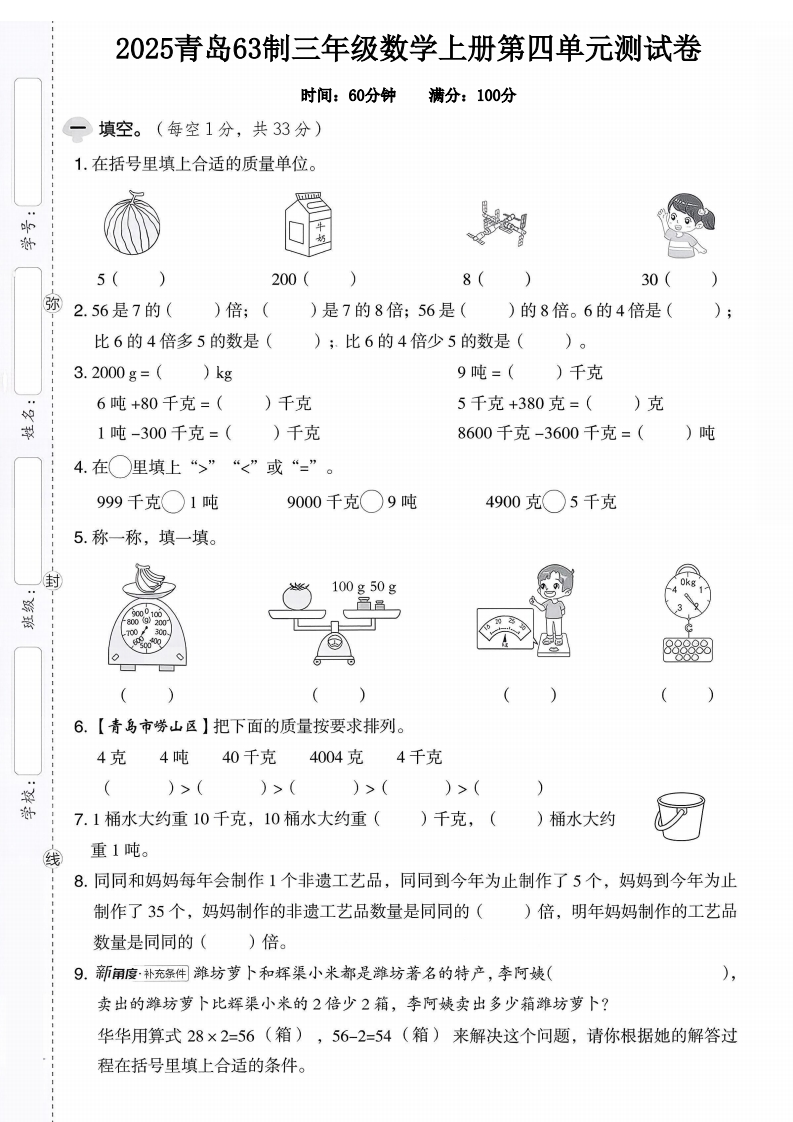 2025青岛63制三年级数学上册第四单元测试卷
时间：60分钟 满分：100分
一 填空。（每空1分，共33分）
1. 在括号里填上合适的质量单位。
牛奶
5（ ） 200（ ） 8（ ） 30（ ）
2. 56是7的（ ）倍；（ ）是7的8倍；56是（ ）的8倍。6的4倍是（ ）；
比6的4倍多5的数是（ ）；比6的4倍少5的数是（ ）。
3. 2000 g =（ ）kg 9吨 =（ ）千克
6吨 +80千克 =（ ）千克 5千克 +380克 =（ ）克
1吨 -300千克 =（ ）千克 8600千克 -3600千克 =（ ）吨
4. 在○里填上“>”“<”或“=”。
999千克○1吨 9000千克○9吨 4900克○5千克
5. 称一称，填一填。
0 100 200 300 400 500 600 700 800 900 (g)
100 g 50 g
10 20 25 30 kg
0kg 1 2 3 4
（ ） （ ） （ ） （ ）
6.【青岛市崂山区】把下面的质量按要求排列。
4克 4吨 40千克 4004克 4千克
（ ）>（ ）>（ ）>（ ）>（ ）
7. 1桶水大约重10千克，10桶水大约重（ ）千克，（ ）桶水大约
重1吨。
8. 同同和妈妈每年会制作1个非遗工艺品，同同到今年为止制作了5个，妈妈到今年为止
制作了35个，妈妈制作的非遗工艺品数量是同同的（ ）倍，明年妈妈制作的工艺品
数量是同同的（ ）倍。
9. 新角度·补充条件 潍坊萝卜和辉渠小米都是潍坊著名的特产，李阿姨（ ），
卖出的潍坊萝卜比辉渠小米的2倍少2箱，李阿姨卖出多少箱潍坊萝卜？
华华用算式 28×2=56（箱），56-2=54（箱）来解决这个问题，请你根据她的解答过
程在括号里填上合适的条件。
学号：
姓名：
班级：
学校：
弥
封
线